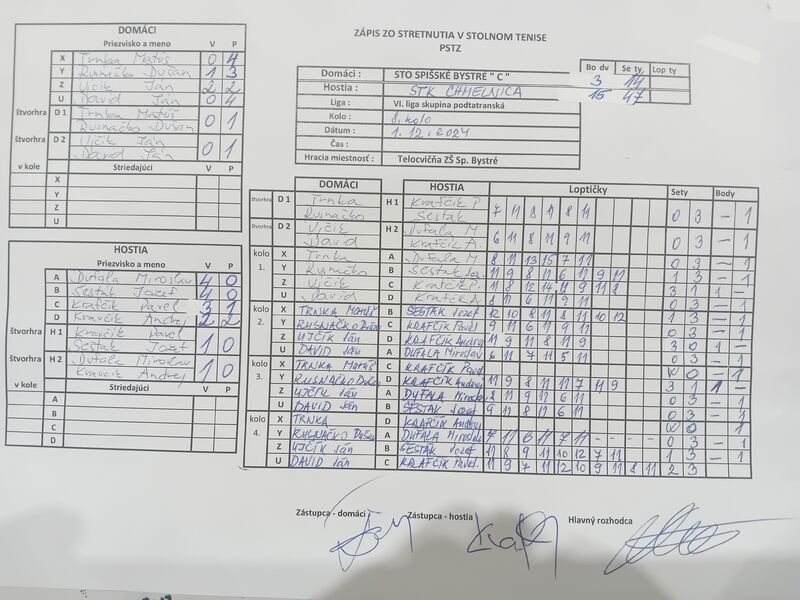 ZÁPIS ZO STRETNUTIA V STOLNOM TENISE
PSTZ
DOMÁCI
Priezvisko a meno V P
X Trnka Matúš 0 4
Y Rusnačko Dušan 1 3
Z Ujčik Ján 2 2
U David Ján 0 4
štvorhra D 1 Trnka Matúš
Rusnačko Dušan 0 1
štvorhra D 2 Ujčik Ján
David Ján 0 1
v kole Striedajúci V P
X
Y
Z
U
Domáci : STO SPIŠSKÉ BYSTRÉ " C "
Hostia : STK CHMEĽNICA
Liga : VI. liga skupina podtatranská
Kolo : 8. kolo
Dátum : 1. 12. 2024
Čas :
Hracia miestnosť : Telocvičňa ZŠ Sp. Bystré
Bo dy Se ty Lop ty
3 14
15 47
HOSTIA
Priezvisko a meno V P
A Dufala Miroslav 4 0
B Šestak Jozef 4 0
C Krafčík Pavel 3 1
D Kravčik Andrej 2 2
štvorhra H 1 Kravčik Pavel
Šestak Jozef 1 0
štvorhra H 2 Dufala Miroslav
Kravcik Andrej 1 0
v kole Striedajúci V P
A
B
C
D
DOMÁCI HOSTIA Loptičky Sety Body
štvorhra D 1 Trnka H 1 Krafčik P.
Rusnačko Šestak 7 11 8 11 8 11 0 3 – 1
štvorhra D 2 Ujčik H 2 Dufala M
David Krafčik A. 6 11 8 11 9 11 0 3 – 1
kolo 1.
X Trnka A Dufala M 8 11 13 15 7 11 0 3 – 1
Y Rusnačko B Šestak Joz. 11 9 8 11 6 11 9 11 1 3 – 1
Z Ujčik C Krafčik P. 11 8 12 14 11 9 11 8 3 1 1 –
U David D Krafčik A. 8 11 6 11 9 11 0 3 – 1
kolo 2.
X TRNKA MATÚŠ B ŠESTAK Jozef 12 10 8 11 8 11 10 12 1 3 – 1
Y RUSNAČKO Dušan C KRAFČÍK Pavel 9 11 6 11 9 11 0 3 – 1
Z UJČÍK Ján D KRAFČÍK Andrej 11 9 11 8 11 9 3 0 1 –
U DAVID Ján A DUFALA Miroslav 6 11 7 11 5 11 0 3 – 1
kolo 3.
X TRNKA Matúš C KRAFČÍK Pavel W O – 1
Y RUSNAČKO Dušan D KRAFČÍK Andrej 11 9 8 11 11 7 11 9 3 1 1 –
Z UJČÍK Ján A DUFALA Miroslav 8 11 9 11 6 11 0 3 – 1
U DAVID Ján B ŠESTAK Jozef 9 11 8 11 6 11 0 3 – 1
kolo 4.
X TRNKA D KRAFČÍK Andrej W O 1
Y RUSNAČKO Dušan A DUFALA Miroslav 7 11 6 11 7 11 - - - - 0 3 – 1
Z UJČÍK Ján B ŠESTAK Jozef 11 8 9 11 10 12 7 11 1 3 – 1
U DAVID Ján C KRAFČÍK Pavel. 11 9 7 11 12 10 9 11 8 11 2 3 – 1
Zástupca - domáci Zástupca - hostia Hlavný rozhodca